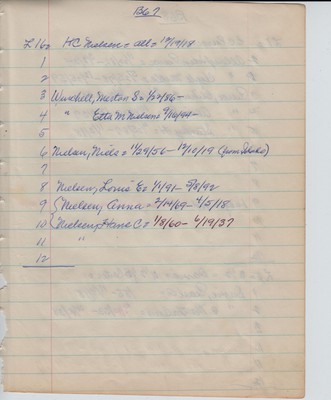 Blk 7
L 16 = HC Nielsen = all = 12/19/18
1
2
3 Winchell, Merton S = 1/22/86 -
4 " Etta M Nielsen = 9/16/94 -
5
6 Nielsen, Niels = 11/29/56 - 12/10/19 (from Idaho)
7
8 Nielsen, Louis E = 1/4/91 - 5/8/92
9 Nielsen, Anna = 2/14/69 - 4/5/18
10 Nielsen, Hans C = 1/8/60 - 6/19/37
11 "
12